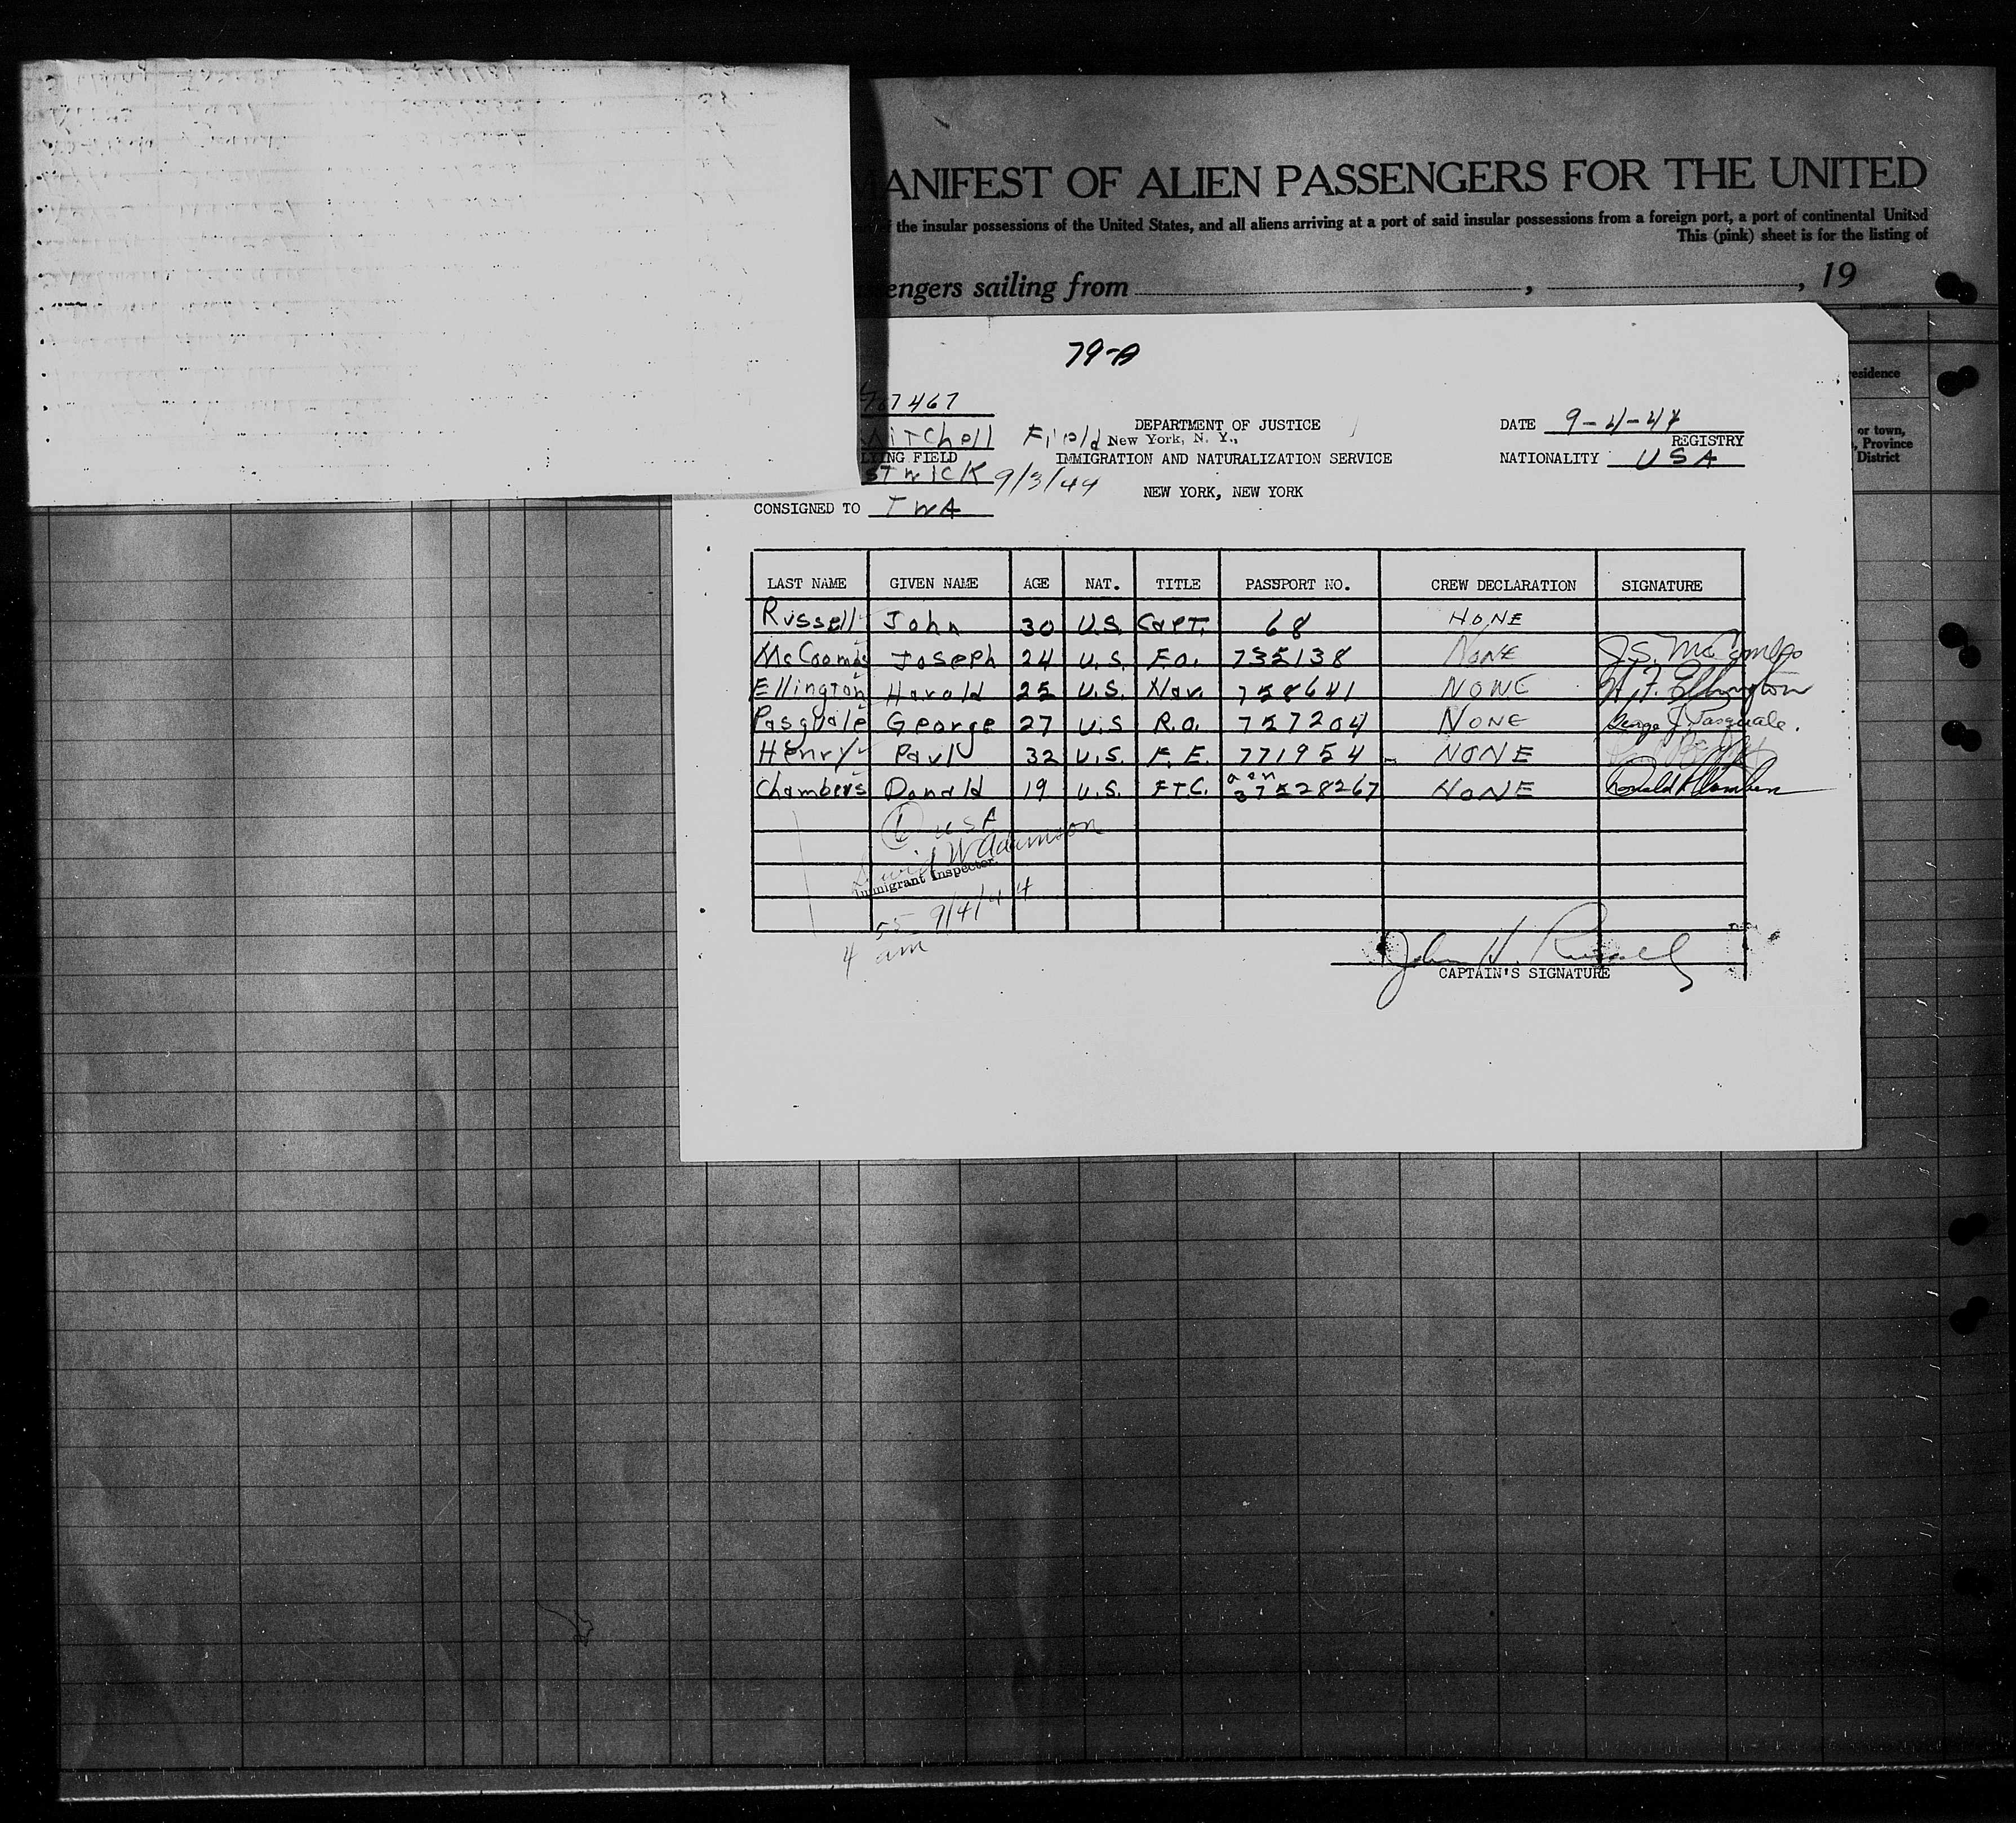 MANIFEST OF ALIEN PASSENGERS FOR THE UNITED
the insular possessions of the United States, and all aliens arriving at a port of said insular possessions from a foreign port, a port of continental United
This (pink) sheet is for the listing of
engers sailing from , , 19
79-A
esidence
or town,
, Province
District
67467
Mitchell Field
DEPARTMENT OF JUSTICE
DATE 9-4-44
New York, N. Y.,
REGISTRY
LYING FIELD
IMMIGRATION AND NATURALIZATION SERVICE
NATIONALITY USA
STWICK 9/3/44
NEW YORK, NEW YORK
CONSIGNED TO TWA
LAST NAME GIVEN NAME AGE NAT. TITLE PASSPORT NO. CREW DECLARATION SIGNATURE
Russell John 30 U.S. Capt. 68 NONE
McCoombs Joseph 24 U.S. F.O. 735138 NONE J.S. McCombs
Ellington Harold 25 U.S. Nav. 758641 NONE H.F. Ellington
Pasquale George 27 U.S R.O. 757204 NONE George J. Pasquale.
Henry Paul 32 U.S. F.E. 771954 NONE
Chambers Donald 19 U.S. F.T.C. asn 37528267 NONE Donald Chambers
6 USA
David W Adamson
Immigrant Inspector
4 55 am 9/4/44
John H. Russell
CAPTAIN'S SIGNATURE